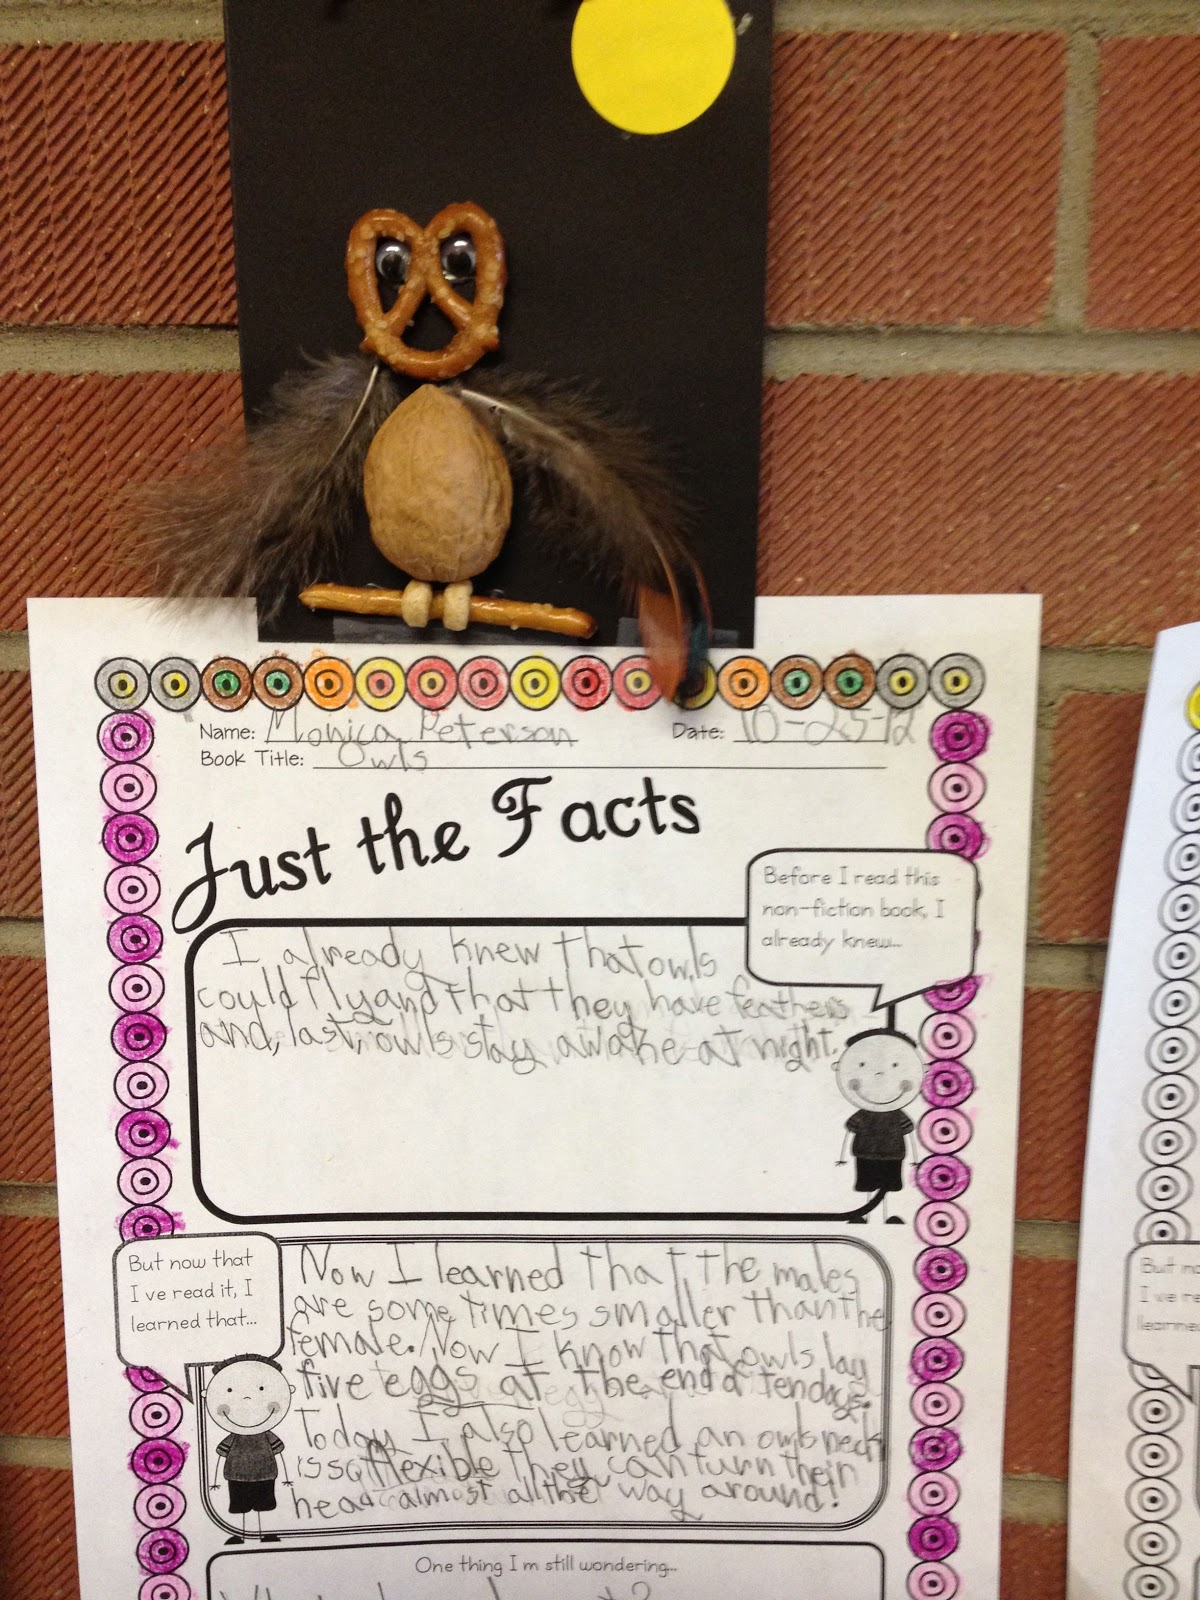 Name: Monica Peterson Date: 10-25-12
Book Title: Owls
Just the Facts
Before I read this
non-fiction book, I
already knew...
I already knew that owls
could fly and that they have feathers
and, last, owls stay awake at night.
But now that
I ve read it, I
learned that...
Now I learned that the males
are sometimes smaller than the
female. Now I know that owls lay
five eggs at the end of ten days.
Today I also learned an owls neck
is so flexible they can turn their
head almost all the way around!
One thing I m still wondering...
But no
I ve re
learne